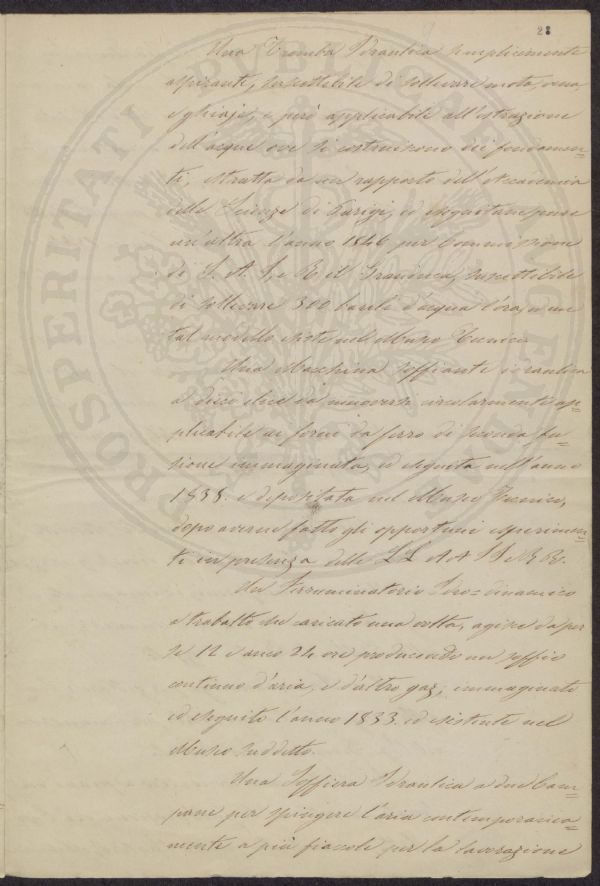 28
Una Tromba Idraulica semplicemente
aspirante, suscettibile di sollevare mota, rena,
e ghiaje, e però applicabile all'estrazione
dell'acque ove si costruiscono dei fondamen=
ti, estratta da un rapporto dell'Accademia
delle Scienze di Parigi, ed eseguitane pure
un'altra l'anno 1846 per Commissione
di S. A. I. e R. il Granduca, suscettibile
di sollevare 300 barili d'acqua l'ora, e un
tal modello esiste nell Museo Tecnico
Una Macchina soffiante idraulica
a disco che da muoversi circolarmente ap=
plicabile ai forni da ferro di seconda fu=
sione immaginata, ed eseguita nell'anno
1838. e depositata nel Museo Tecnico,
dopo averne fatto gli opportuni esperimen=
ti in presenza delle LL AA II e RR.
Un Ferruminatorio Idro=dinamico
a trabatto che caricato una volta, agisce da per
se 12 e anco 24 ore producendo un soffio
continuo d'aria, e d'altro gaz, immaginato
ed eseguito l'anno 1833. ed esistente nel
Museo suddetto.
Una Soffiera Idraulica a due Cam=
pane per spingere l'aria contemporanea=
mente a più fiaccole per la lavorazione
PROSPERITATI PVBLICAE AVGENDAE